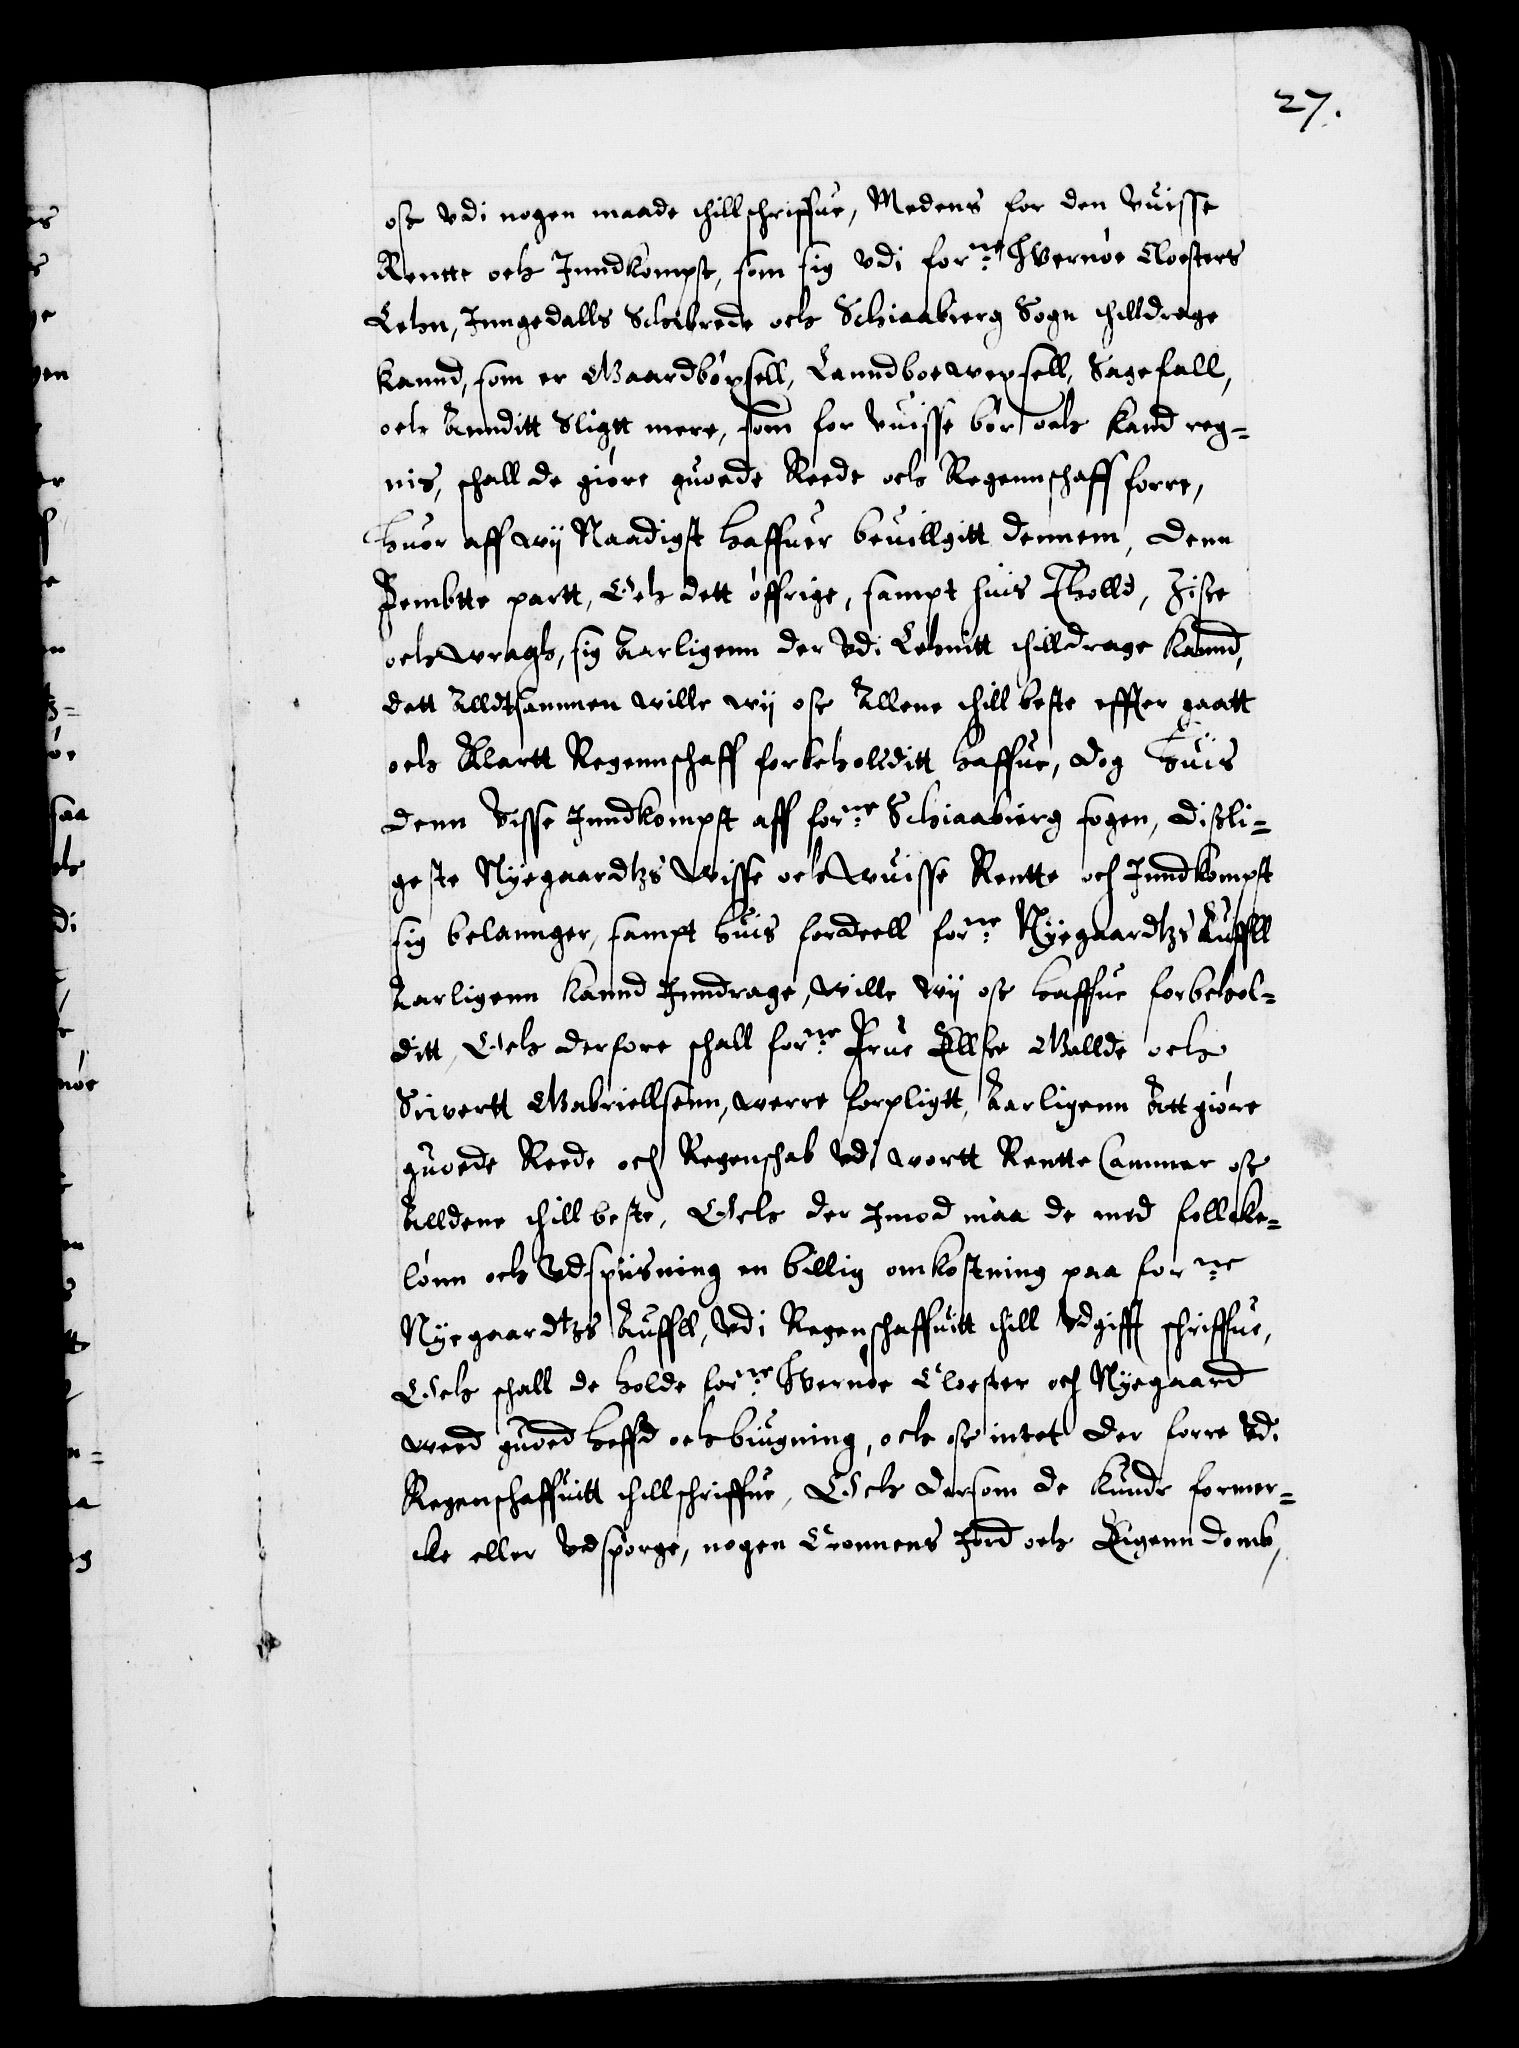 27.
oss vdi nogen maade thillschriffue, Medens for den vuisse
Rentte och Inndkompst, som sig vdi forne: Hvernöe Closters
Lehn, Inngedalls Schibrede och Schiaabierg Sogn thilldrage
kannd, som er Gaardböxsell, Lanndboewexsell, Sagefall,
och Annditt Sligtt mere, som for vuisse bör och kand reg-
nis, schall de giöre guoede Reede och Regennschaff forre,
Huor aff wij Naadigst haffuer beuillgitt dennem, denn
Fembtte partt, Och dett öffrige, sampt huis Tholld, Zise
och wragh, sig Aarligenn der vdi Lehnitt thilldrage kannd,
dett Alldtsammen wille wij oss Allene thill beste effter gaatt
och Klartt Regennschaff forbeholditt haffue, dog huis
denn Visse Inndkompst aff forne: Schiaabierg sogen, disli-
geste Nyegaardtzs wisse och wuisse Rentte och Inndkompst
sig belannger, sampt huis fordeell forne: Nyegaardtzs Auffll
Aarligenn kannd Inndrage, wille wij oss haffue forbehol-
ditt, Och derfore schall forne: Frue Ellsse Gallde och
Siuertt Gabriellsenn, werre forpligtt, Aarligenn Att giöre
guoede Reede och Regenschab vdi wortt Rentte Cammer oss
Alldene thill beste, Och der Imod maa de med follcke-
lönn och Vdspiisning en billig omkostning paa forne:
Nyegaardtzs Auffll, vdi Regenschaffuitt thill vdgifft schriffue,
Och schall de holde forne: Hvernöe Closter och Nyegaard
weed guoed heffd och biugning, och oss intet der forre vdi
Regenschaffuitt thillschriffue, Och dersom de kunde former-
cke eller vdspörge, nogen Cronnens Jord och Eigenndomb,